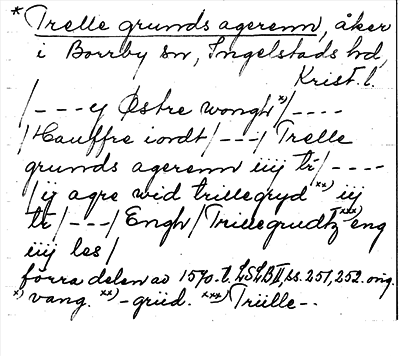 * Trelle grunds agerenn, åker
i Borrby sn, Ingelstads hd,
Krist. l.
/---ij Østre wongh x)/----
/Hauffre iordt/---/Trelle
grunds agerenn iiij tr/----
/ij agre wid trillegryd xx) iij
tr/---/Engh/Trillegrudtz xxx) eng
iiij les/
förra delen av 1570-t. LSLB II, ss. 251, 252. orig.
x) vang. xx) -grüd. xxx) Trülle--